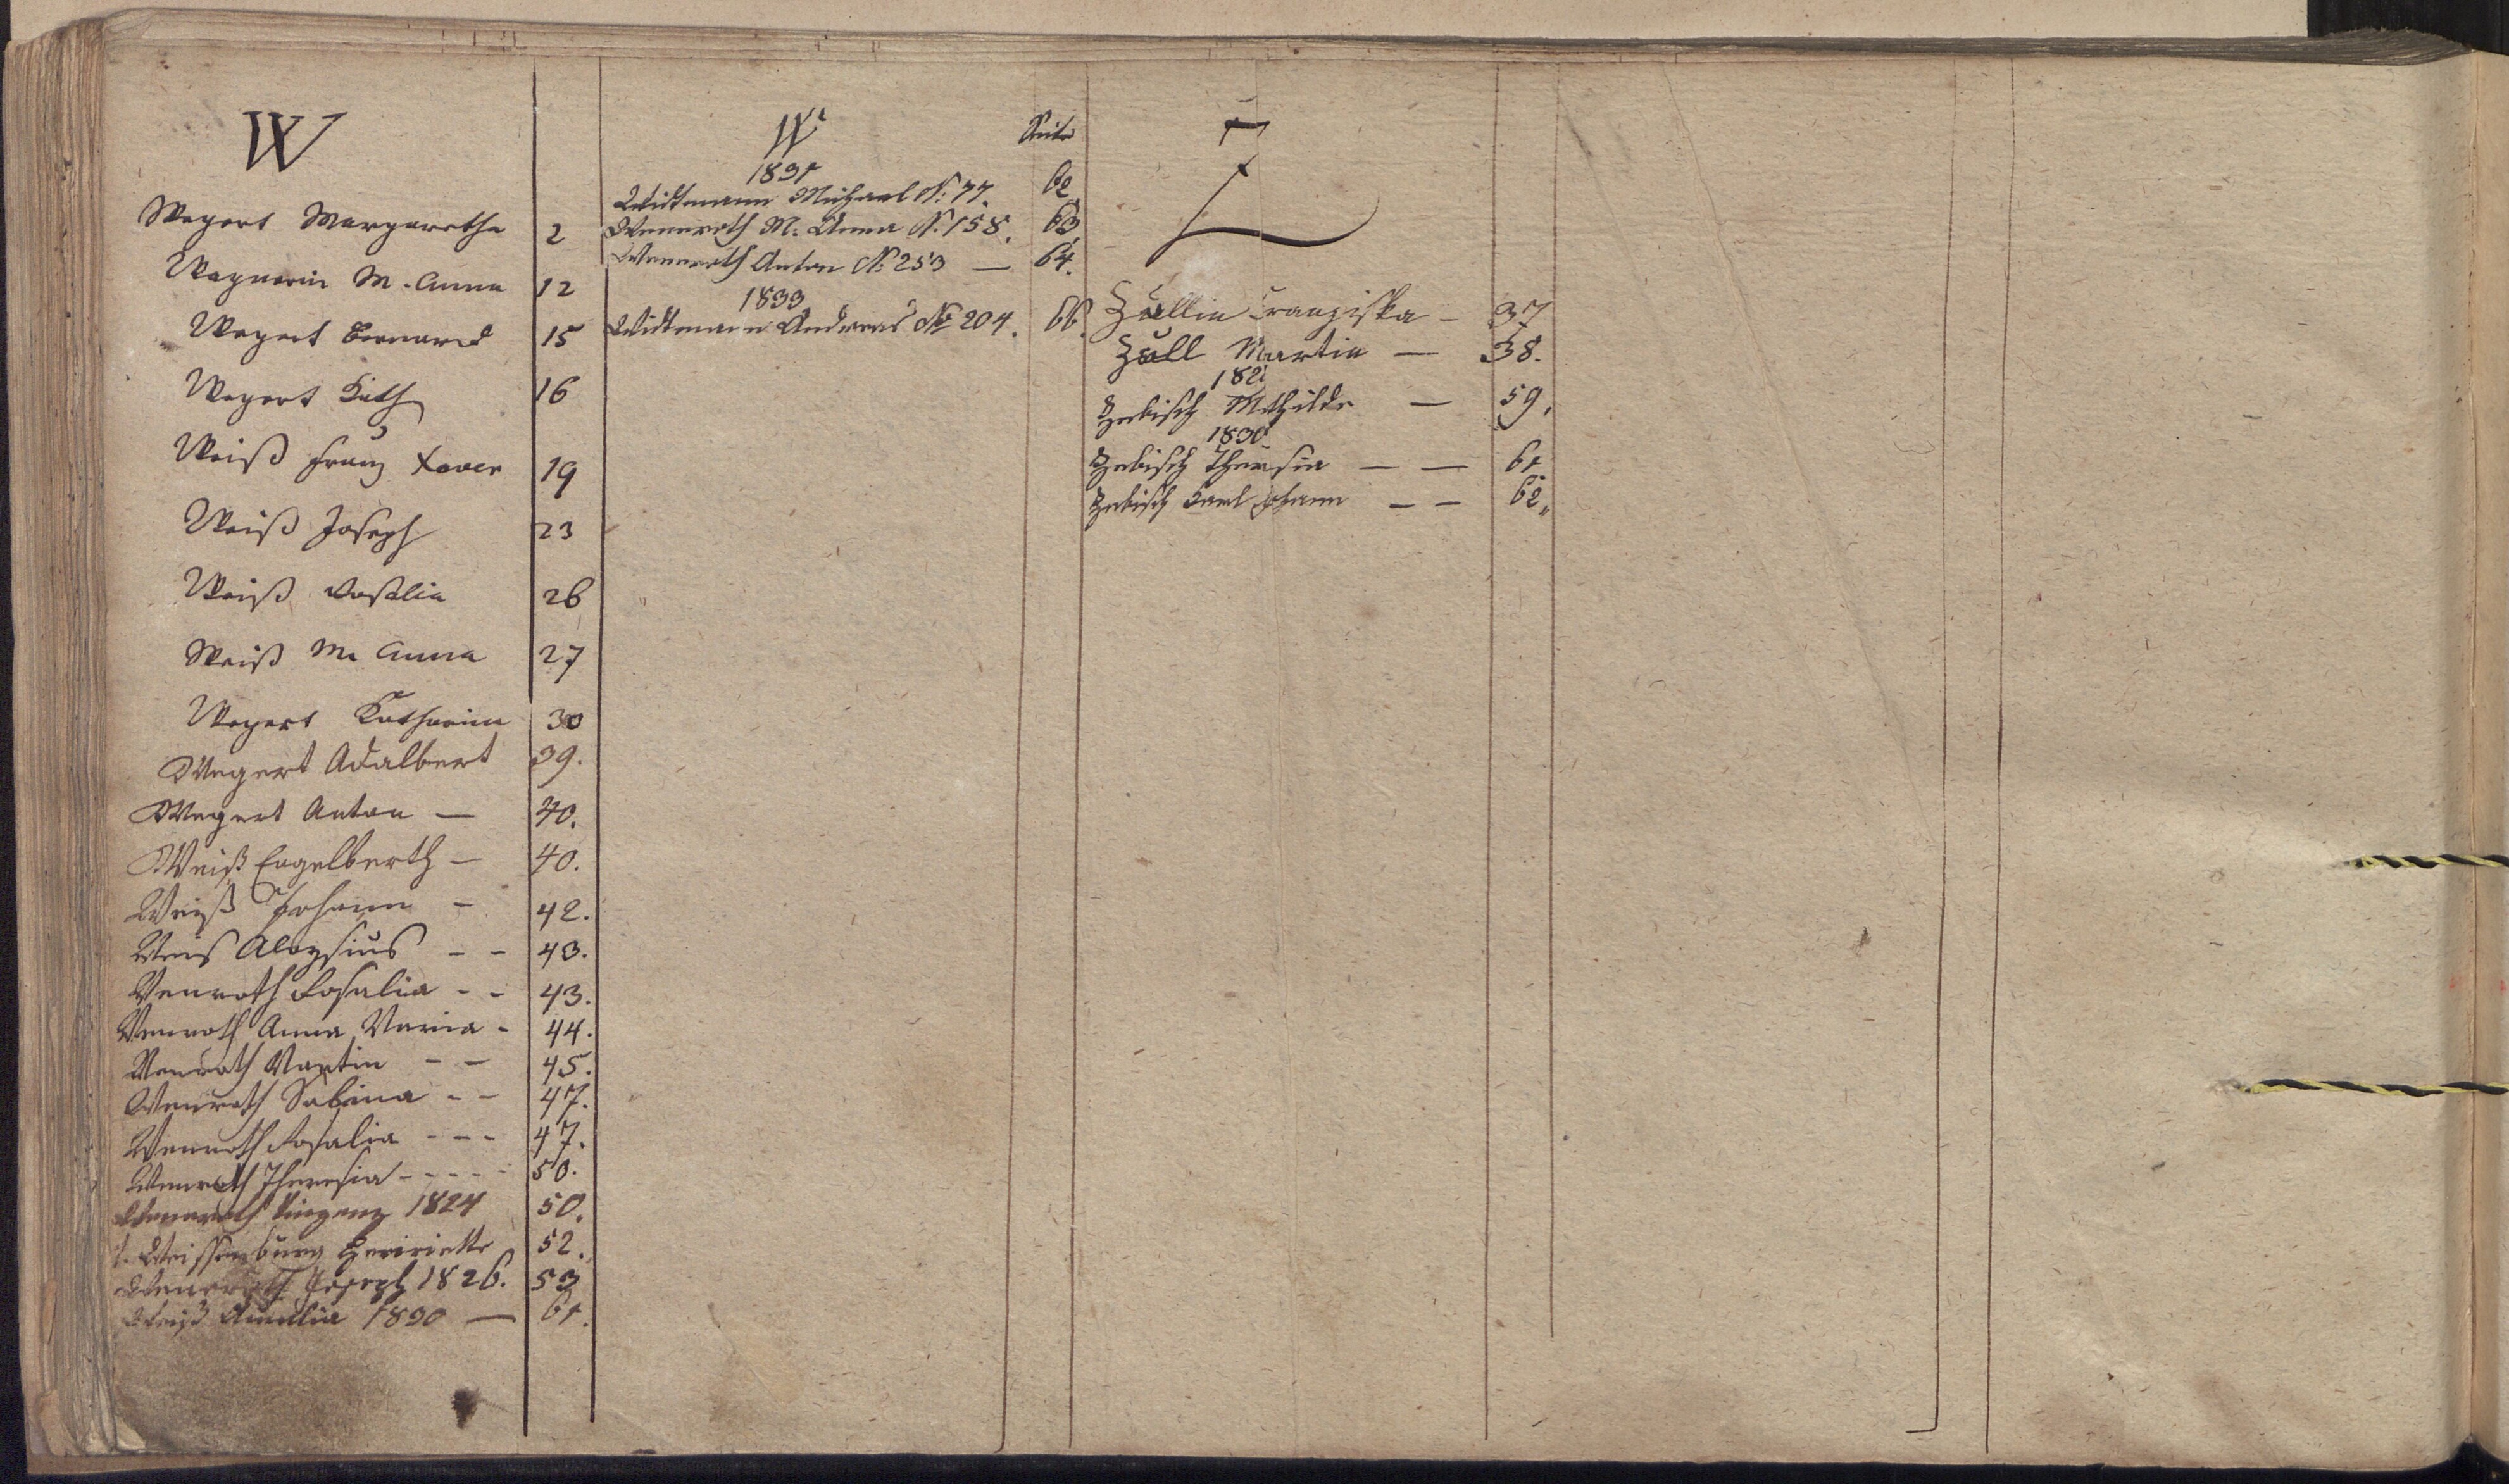 W
Wegert Margaretha 2
Wagnerin M. Anna 12
Wegert Bernard 15
Wegert Kath 16
Weiß Franz Xaver 19
Weiß Joseph 23
Weiß Rosalia 26
Weiß M. Anna 27
Wegert Katharina 30
Wegert Adalbert 39.
Wegert Anton — 40.
Weiß Engelberth — 40.
Weiß Johann - 42.
Weis Aloysius - - 43.
Wenroth Rosalia - - 43.
Wenroth Anna Maria - 44.
Wenroth Martin - - 45.
Wenroth Sabina - - 47.
Wenroth Rosalia - - - 47.
Wenroth Theresia - - - - 50.
Wenroth Vinzenz 1824 50.
v. Weissenburg Henriette 52.
Wenroth Joseph 1826. 53
Weiß Amalia 1830 — 61.
W Seite
1831
Widtmann Michael N: 77. 62
Wenroth M. Anna N. 158. 63
Wenroth Anton N: 253 — 64.
1833
Widtmann Andreas No 204. 66.
Z
Zällin Franziska - 37
Zäll Martin — 38.
182
Zebisch Mathilde — 59.
1830
Zebisch Theresia — — 61
Zebisch Karl Johann — — 62